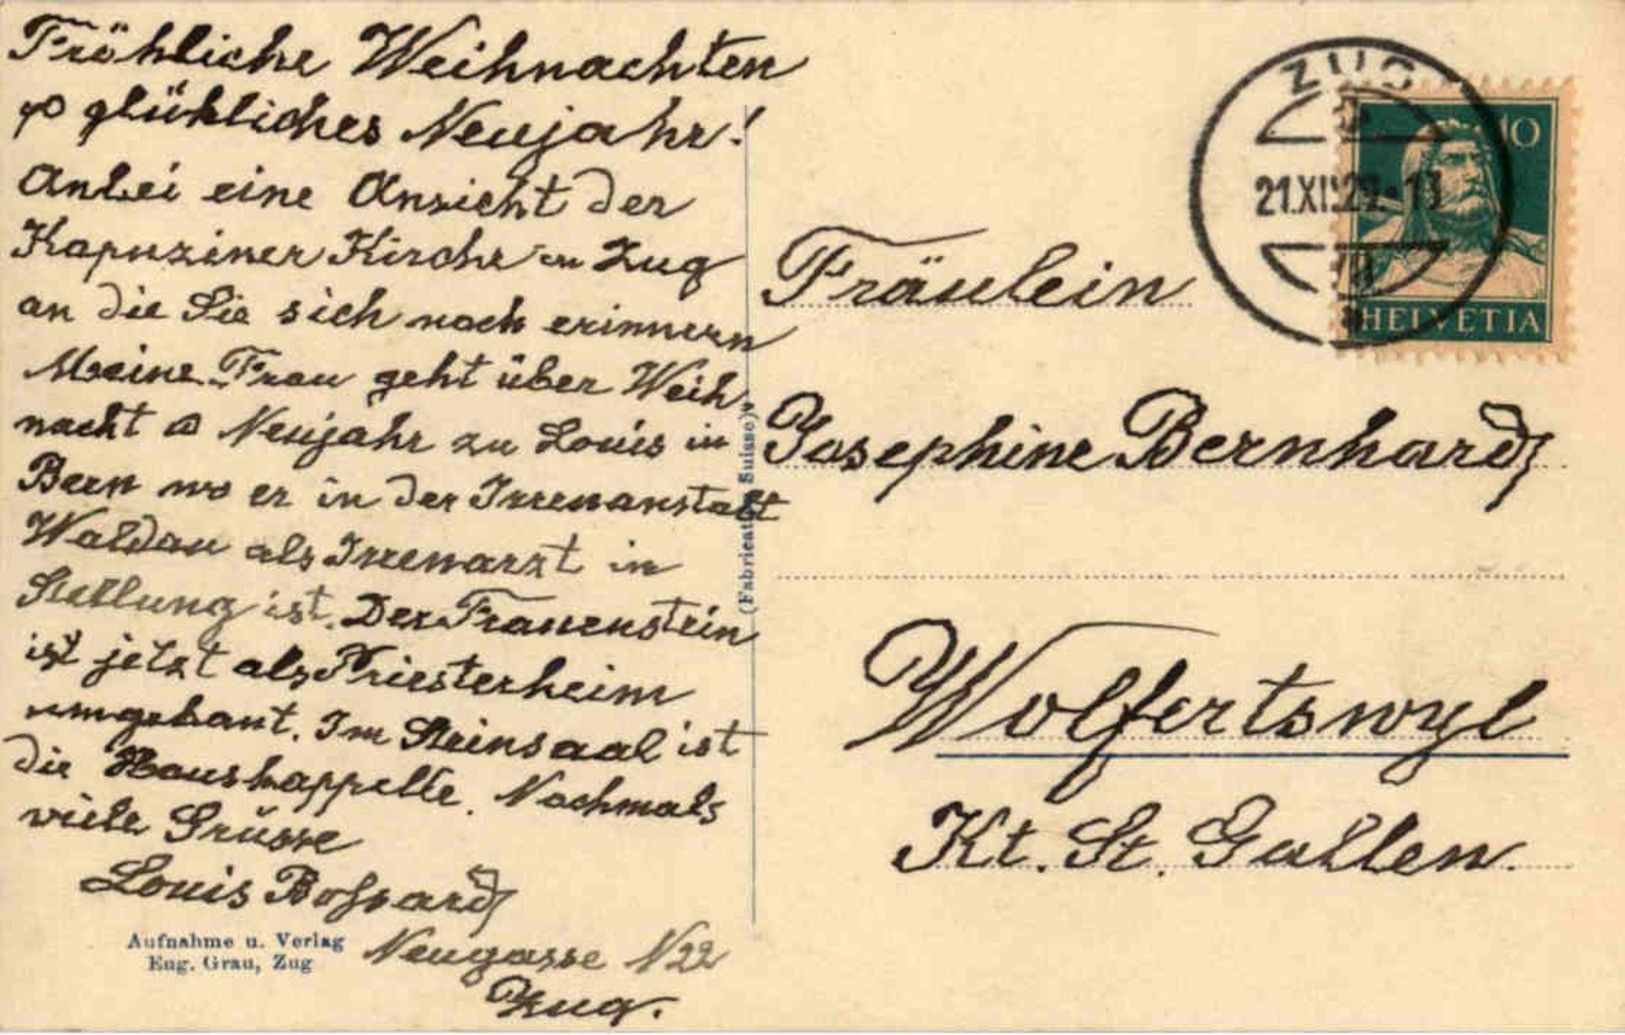 Fröhliche Weihnachten
& glükliches Neujahr!
Anbei eine Ansicht der
Kapuziner Kirche in Zug
an die Sie sich noch erinnern
Meine Frau geht über Weih-
nacht & Neujahr zu Louis in
Bern wo er in der Irrenanstalt
Waldau als Irrenarzt in
Stellung ist. Der Frauenstein
ist jetzt als Priesterheim
umgebaut. Im Steinsaal ist
die Hauskappelle. Nochmals
viele Grüsse
Louis Bossard
Neugasse N22
Zug.
Aufnahme u. Verlag
Eug. Grau, Zug
(Fabrication Suisse)
ZUG
21.XII.29.
10
HELVETIA
Fräulein
Josephine Bernhard
Wolfertswyl
Kt. St. Gallen.